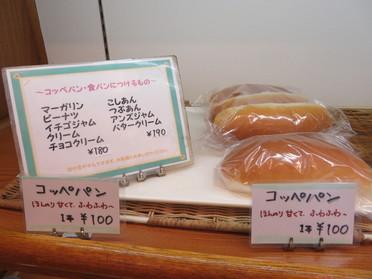 ～コッペパン・食パンにつけるもの～
マーガリン
ピーナツ
イチゴジャム
クリーム
チョコクリーム
¥180
こしあん
つぶあん
アンズジャム
バタークリーム
¥190
コッペパン
ほんのり甘くて、ふわふわ～
1本 ¥100
コッペパン
ほんのり甘くて、ふわふわ～
1本 ¥100